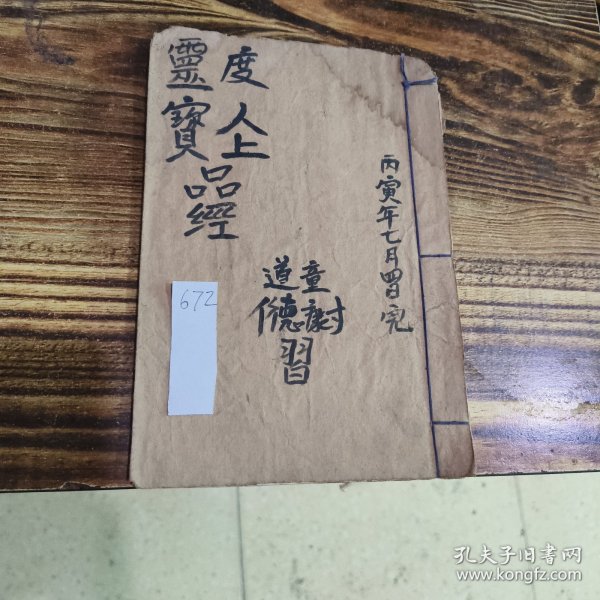 丙寅年七月四日完
度人上
靈寶
品經
童謝
道德
習
672
孔夫子旧书网
www.kongfz.com